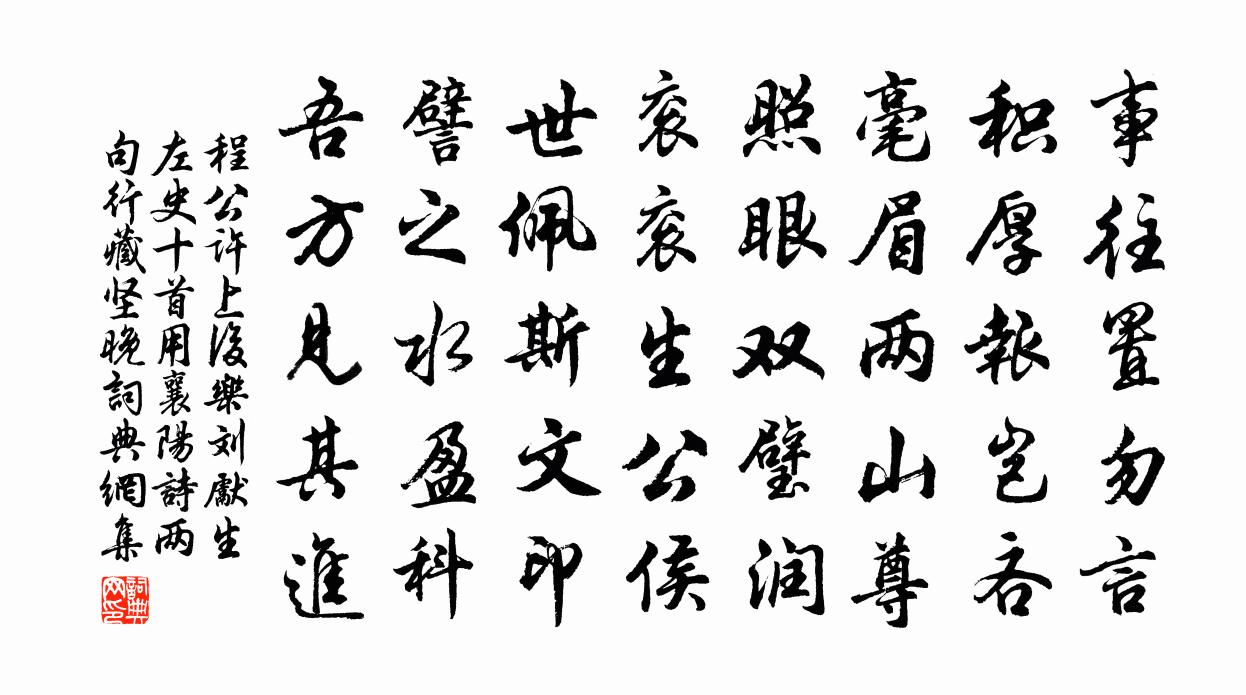 事往置勿言
积厚報岂吝
毫眉两山尊
照眼双璧润
衮衮生公侯
世佩斯文印
譬之水盈科
吾方见其進
程公许上後樂刘獻生
左史十首用襄陽詩两
句行藏坚晚詞典網集
詞典网印